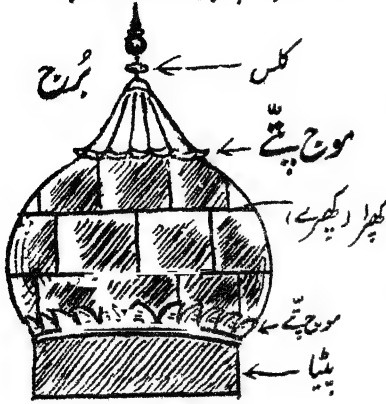 کلس
بُرج
موج پتّے
کھپرا (کھپرے)
موج پتّے
پٹیا